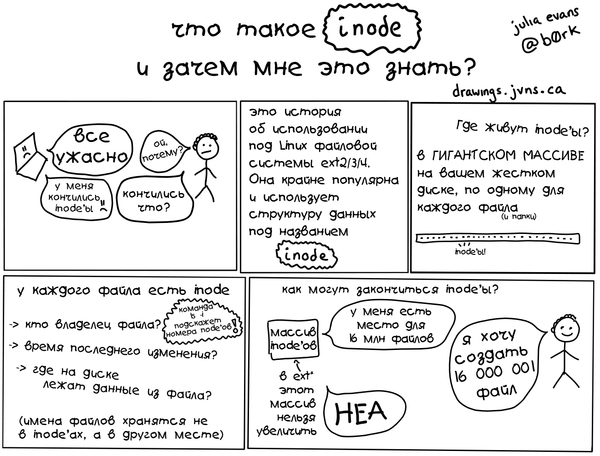 что такое inode
и зачем мне это знать?
julia evans
@b0rk
drawings.jvns.ca
все
ужасно
ой,
почему?
у меня
кончились
inode'ы
кончились
что?
это история
об использовании
под Linux файловой
системы ext2/3/4.
Она крайне популярна
и использует
структуру данных
под названием
inode
Где живут inode'ы?
в ГИГАНТСКОМ МАССИВЕ
на вашем жестком
диске, по одному для
каждого файла
(и папки)
inode'ы!
у каждого файла есть inode
команда
подскажет
номера inode'ов!
-> кто владелец файла?
-> время последнего изменения?
-> где на диске
лежат данные из файла?
(имена файлов хранятся не
в inode'ах, а в другом месте)
как могут закончиться inode'ы?
массив
inode'ов
у меня есть
место для
16 млн файлов
я хочу
создать
16 000 001
файл
в ext*
этот
массив
нельзя
увеличить
НЕА